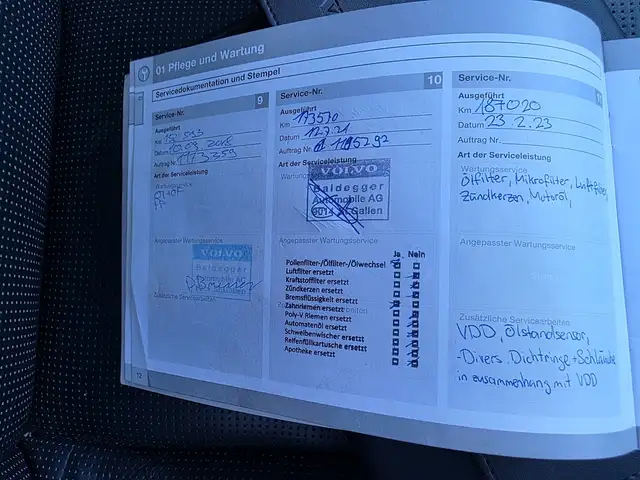 01 Pflege und Wartung
Servicedokumentation und Stempel
Service-Nr. 9
Ausgeführt
Km
Datum
Auftrag Nr. 1173359
Art der Serviceleistung
Wartungsservice
Angepasster Wartungsservice
VOLVO
Baldegger
Zusätzliche Servicearbeiten
12
Service-Nr. 10
Ausgeführt
Km 173570
Datum 12.7.21
Auftrag Nr. 1195292
Art der Serviceleistung
VOLVO
Baldegger
Automobile AG
St.Gallen
Angepasster Wartungsservice
Ja Nein
Pollenfilter-/Ölfilter-/Ölwechsel
Luftfilter ersetzt
Kraftstoffilter ersetzt
Zündkerzen ersetzt
Bremsflüssigkeit ersetzt
Zahnriemen ersetzt
Poly-V Riemen ersetzt
Automatenöl ersetzt
Scheibenwischer ersetzt
Reifenfüllkartusche ersetzt
Apotheke ersetzt
Service-Nr.
Ausgeführt
Km 187020
Datum 23.2.23
Auftrag Nr.
Art der Serviceleistung
Wartungsservice
Ölfilter, Mikrofilter, Luftfilter,
Zündkerzen, Motoröl,
Angepasster Wartungsservice
Zusätzliche Servicearbeiten
VDD, Ölstandsensor,
-Divers. Dichtringe + Schläuche
in zusammenhang mit VDD